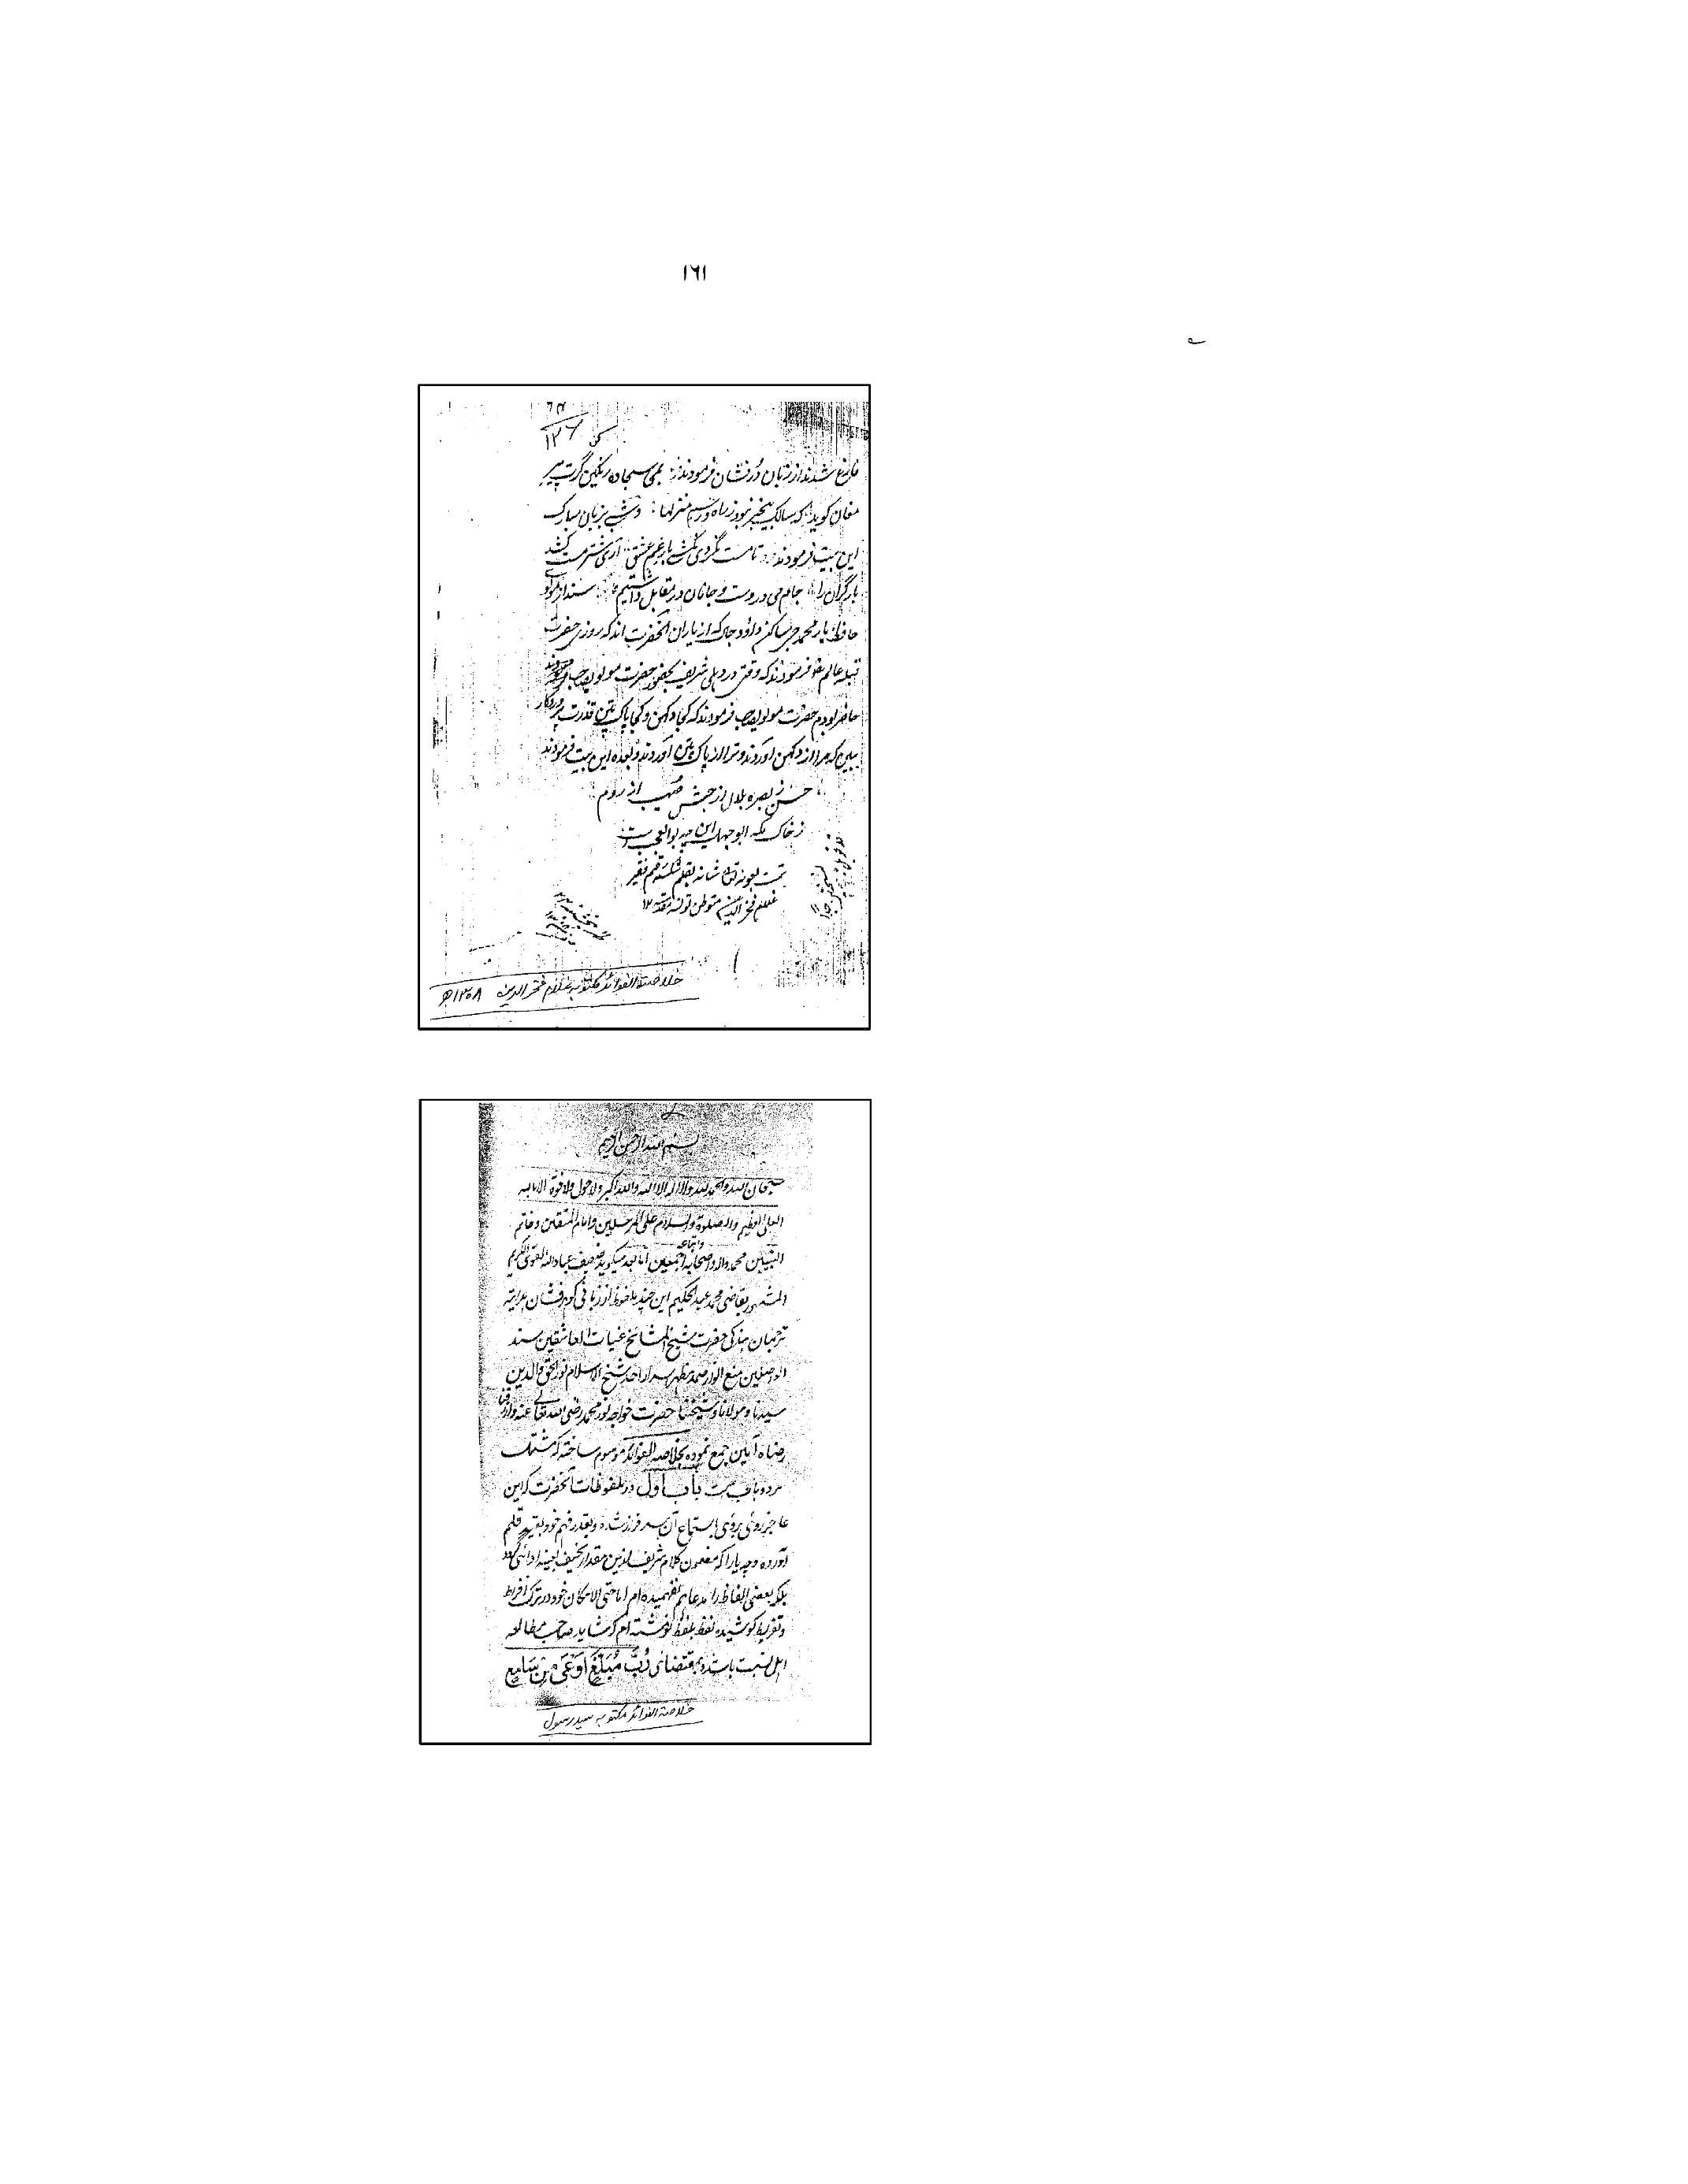 ۱۶۱
۱۲۶
فارغ شدند از زبان درفشان فرمودند بمی سجاده رنگین کن گرت پیر
مغان گوید که سالک بیخبر نبود ز راه و رسم منزلها بزبان مبارک
این بیت فرمودند تا مست نگردی نکشی بار غم عشق آری شتر مست کشد
بار گران را جام می در دست و جانان در مقابل داشتیم
حافظ یار محمد که از یاران آنحضرت اند که روزی حضرت
قبله عالم فرمودند که وقتی در دهلی شریف بحضور حضرت مولویصاحب
حاضر بودم حضرت مولویصاحب فرمودند که کجا دکهن و کجا پاک پتن قدرت پروردگار
ببین که مرا از دکهن آوردند و ترا از پاک پتن آوردند و بعده این بیت فرمودند
حسن ز بصره بلال از حبش صهیب از روم
ز خاک مکه ابوجهل این چه بوالعجبی ست
تمت بعونه تعالی شانه بقلم شکسته رقم فقیر
غلام فخر الدین متوطن
خلاصة الفوائد مکتوبه غلام فخر الدین ۱۲۰۸ھ
بسم الله الرحمن الرحیم
سبحان الله والحمد لله ولا اله الا الله والله اکبر ولا حول ولا قوة الا بالله
العلی العظیم والصلوة والسلام علی المرسلین وامام المتقین وخاتم
النبیین محمد واله واصحابه واتباعه اجمعین اما بعد میگوید ضعیف عباد الله القوی الکریم
المشهور بقاضی محمد عبد الحکیم این چند ملفوظ از زبانی گوهرفشان
ترجمان حضرت شیخ المشائخ غیاث العاشقین سند
الواصلین منبع انوار صمد مظهر اسرار احد شیخ الاسلام نور الحق والدین
سیدنا و مولانا و شیخنا حضرت خواجه نور محمد رضی الله تعالی عنه وارزقنا
رضاه آمین جمع نموده بخلاصه الفوائد موسوم ساخته که مشتمل
بر دو باب ست باب اول در ملفوظات آنحضرت که این
عاجز روبروی باستماع آن سرفراز شده و بقدر فهم خود بقید قلم
آورده و چه یارا که مضمون کلام شریف ازین مقدار نحیف بعینه ادا
بلکه بعضی الفاظ را مدعا هم نفهمیده ام اما حتی الامکان خود در ترک افراط
و تفریط کوشیده لفظ بلفظ نوشته ام که شاید صاحب مطالعه
اهل نسبت باشد و بمقتضای رُبَّ مُبَلَّغٍ اَوْعَیٰ مِنْ سَامِعٍ
خلاصة الفوائد مکتوبه سید رسول